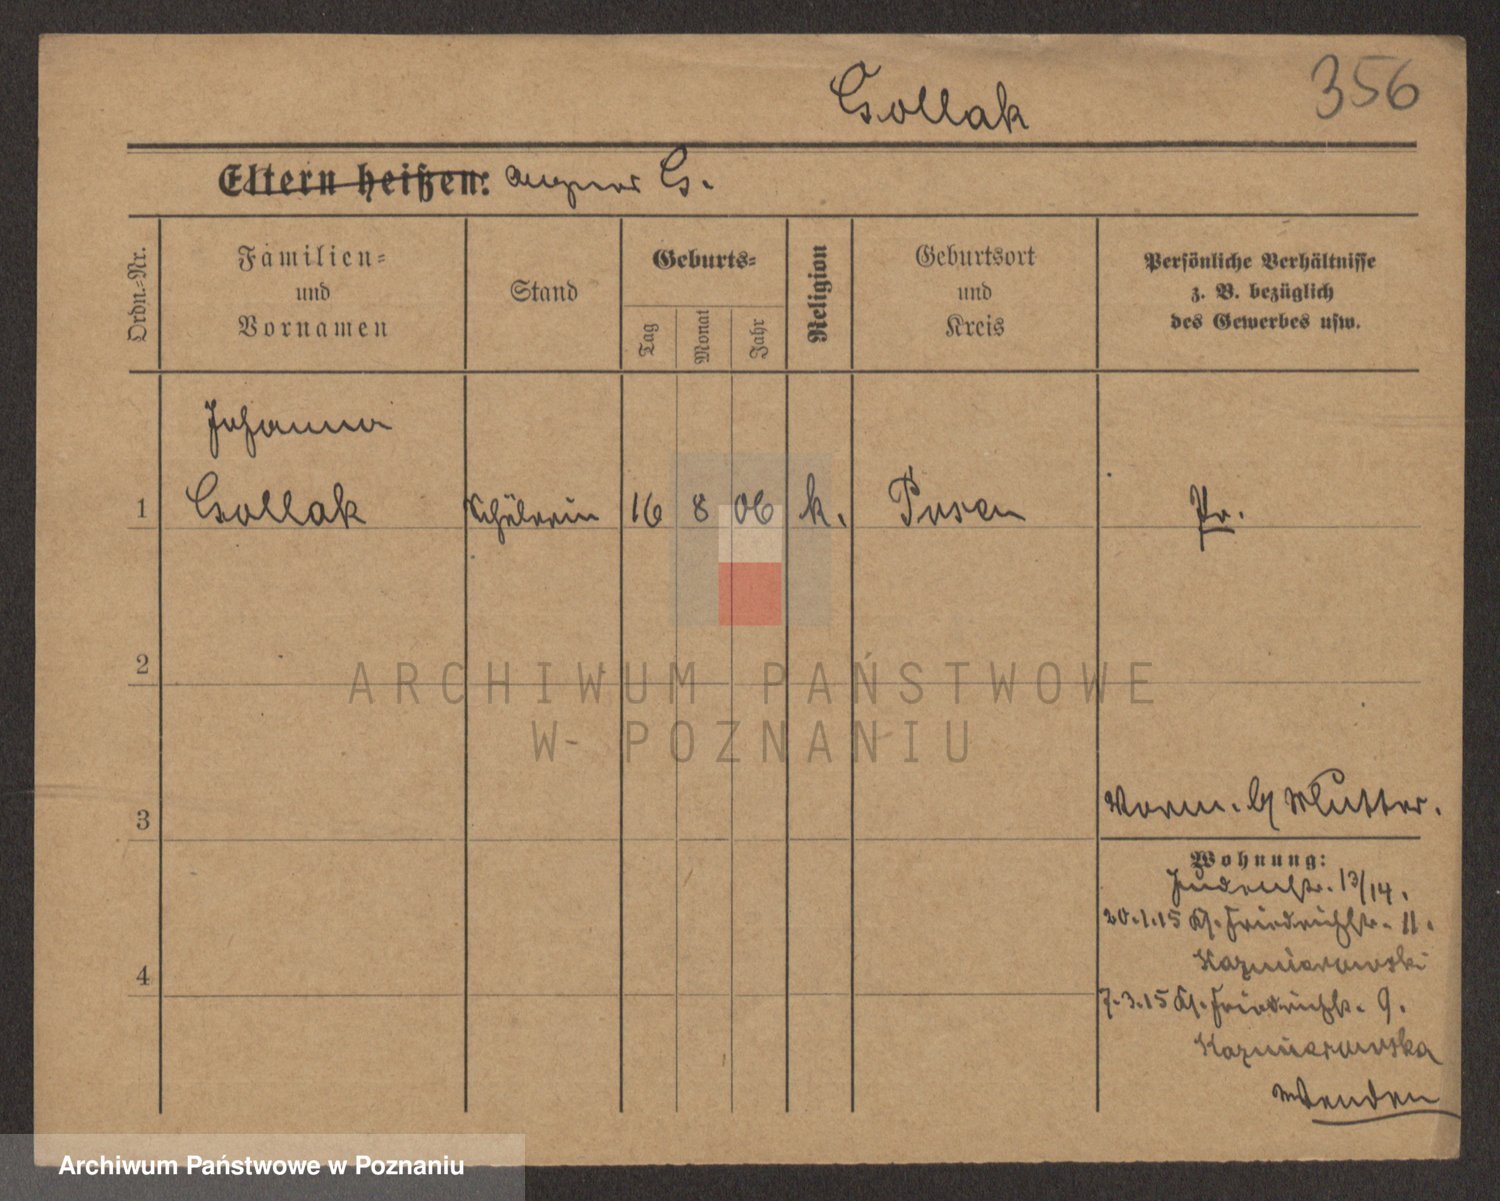 Gollak
356
Eltern heißen: G.
Ordn.-Nr.
Familien-
und
Vornamen
Stand
Geburts-
Tag
Monat
Jahr
Religion
Geburtsort
und
Kreis
Persönliche Verhältnisse
z. B. bezüglich
des Gewerbes usw.
Johanna
1 Gollak Schülerin 16 8 06 k. Posen Pr.
2
ARCHIWUM PAŃSTWOWE
W POZNANIU
3
Vorm. Mutter.
Wohnung:
Judenstr. 13/14.
20.1.15 Kl. Friedrichstr. 11.
Kazmierowski
4
7.3.15 Kl. Friedrichstr. 9.
Kazmierowska
wenden
Archiwum Państwowe w Poznaniu